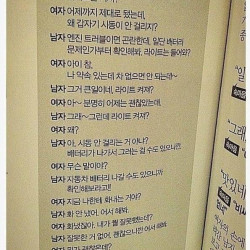 여자 어제까지 제대로 됐는데,
왜 갑자기 시동이 안 걸리지?
남자 엔진 트러블이면 곤란한데, 일단 배터리
문제인가부터 확인해봐, 라이트는 들어와?
여자 아이 참,
나 약속 있는데 차 없으면 안 되는데~
남자 그거 큰일이네, 라이트 켜져?
여자 아~ 분명히 어제는 괜찮았는데,
남자 그래~그런데 라이트 켜져?
여자 왜?
남자 아, 시동 안 걸리는 거 아냐?
배터리가 나가서 그러는 걸 수도 있으니까
여자 무슨 말이야?
남자 자동차 배터리 나갈 수도 있으니까
확인해보라고!
여자 지금 나한테 화내는 거야?
남자 화 안 냈어, 어서 해봐
여자 화났잖아, 내가 뭘 잘못했는데?
남자 잘못한 거 없어, 괜찮으니깐 어서 해봐
여자 뭐가 괜찮은데?
"일